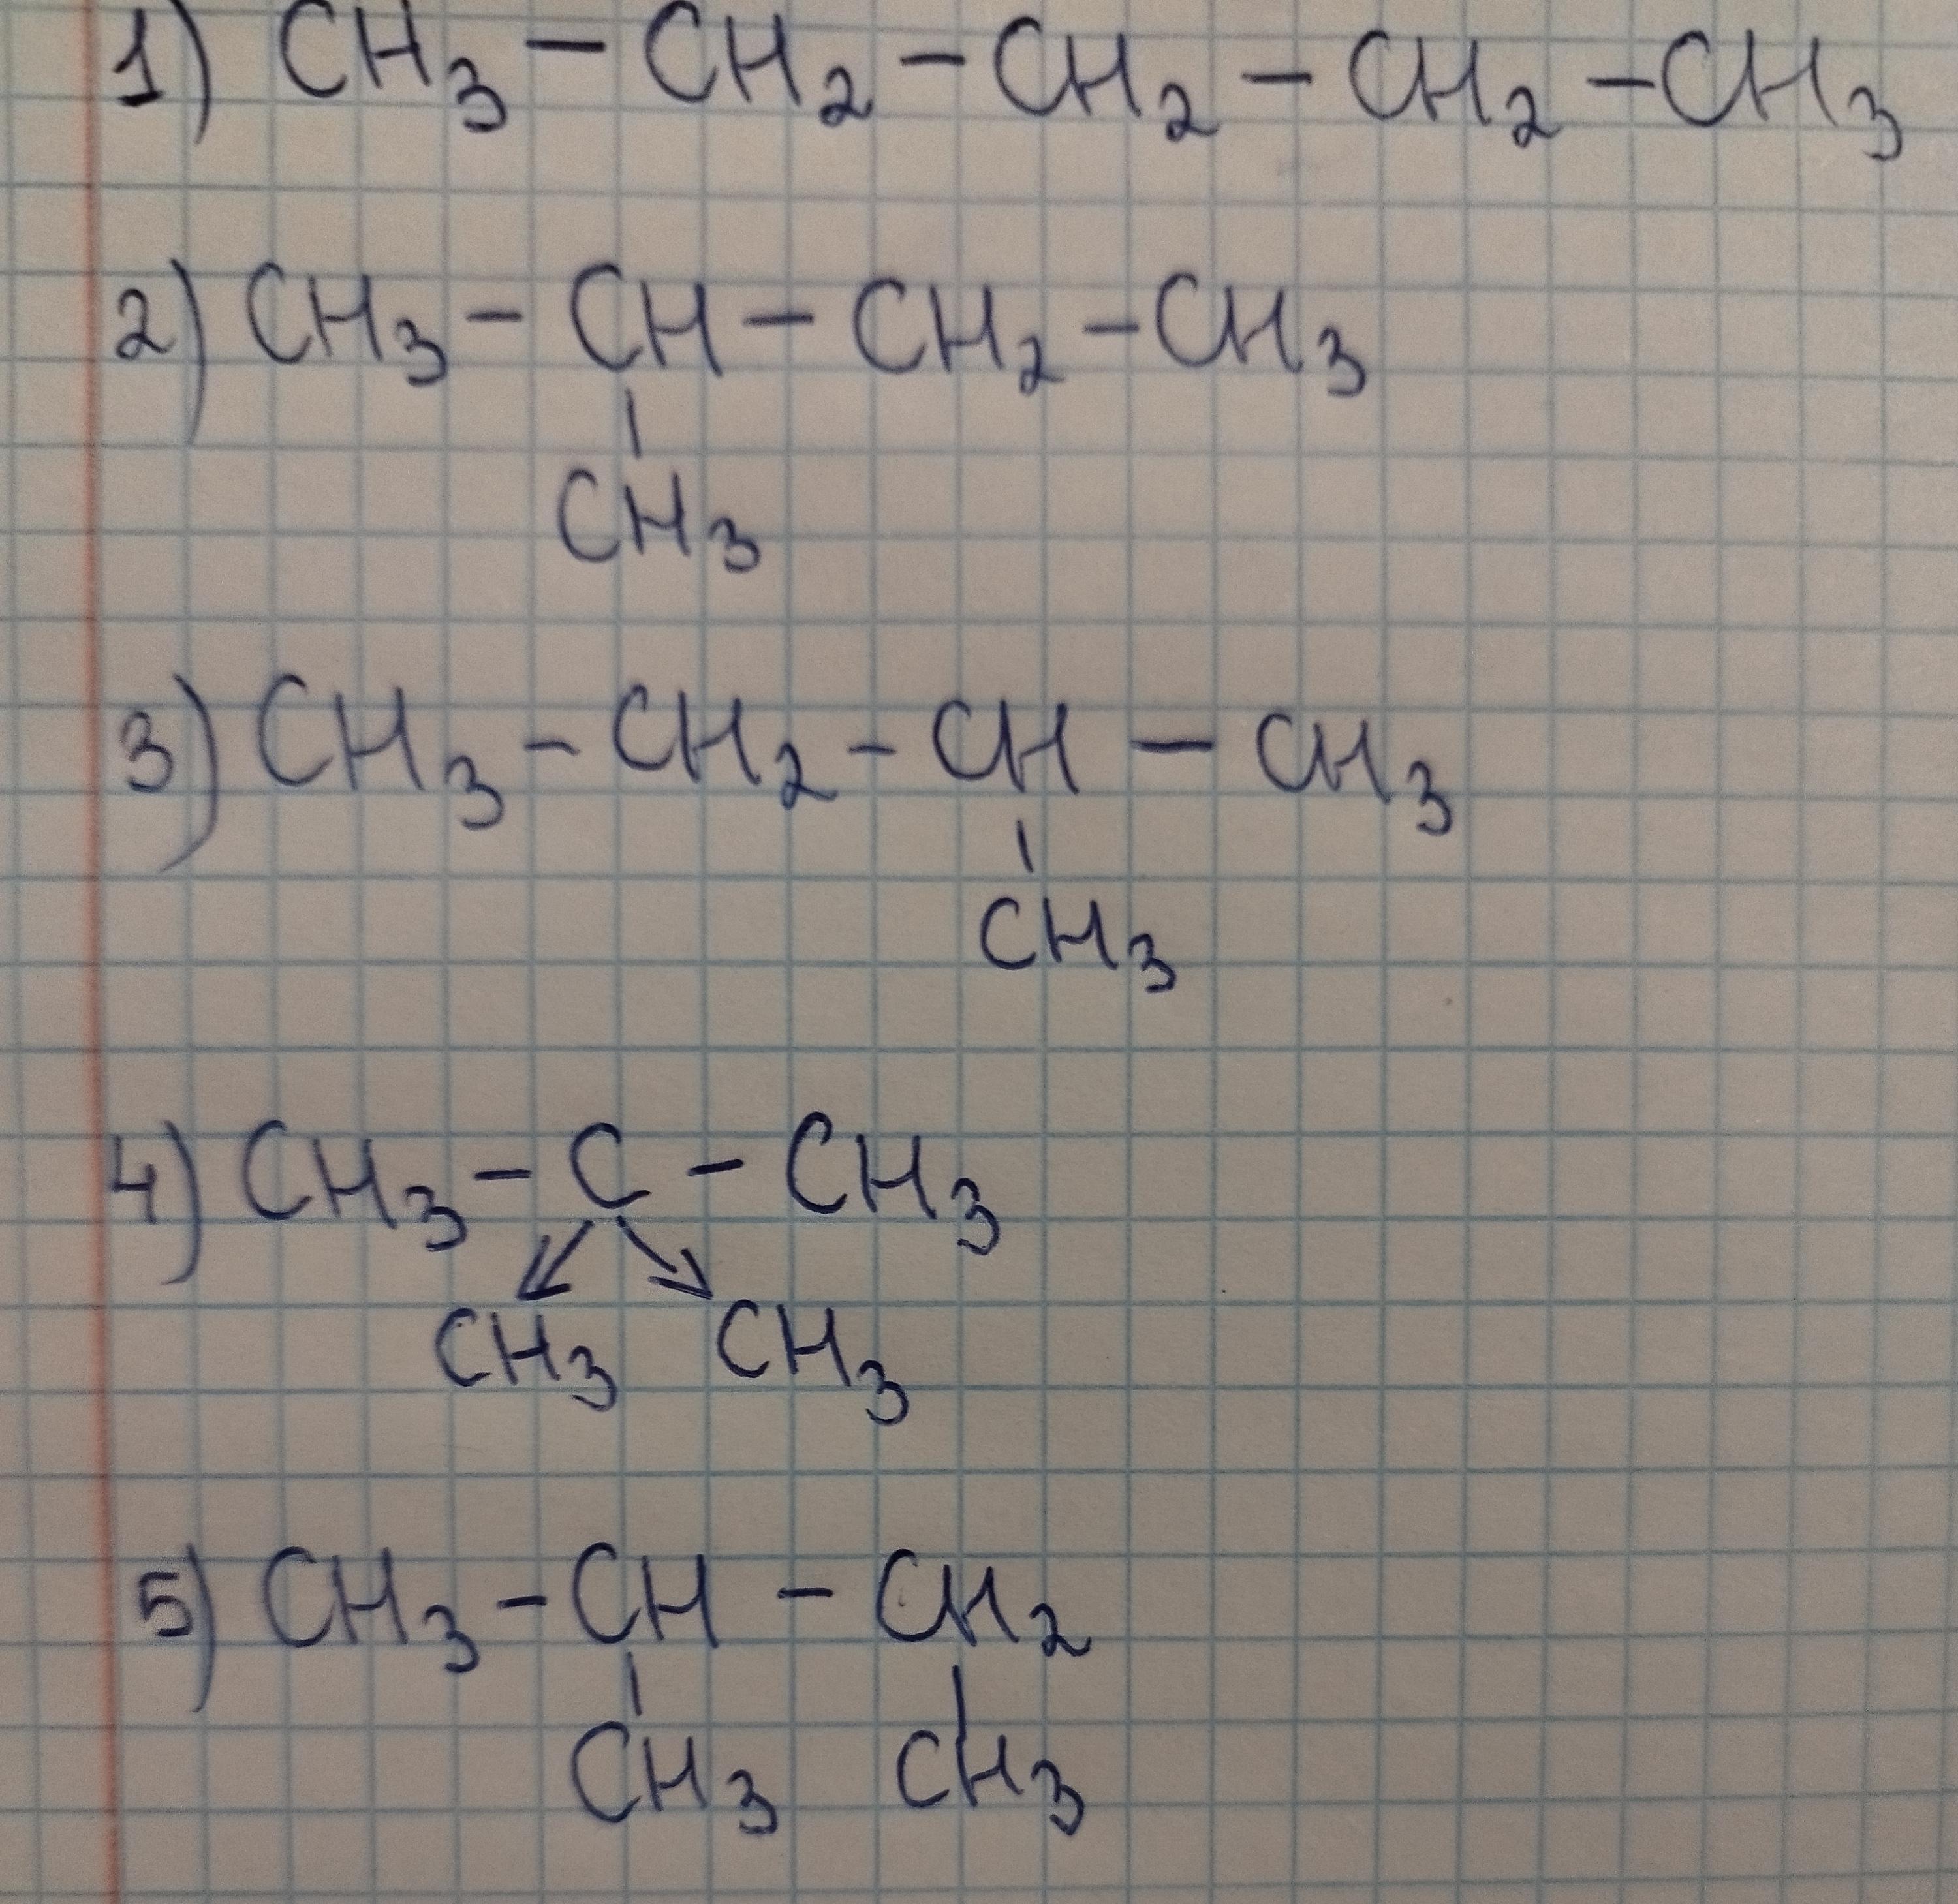 1) CH₃ – CH₂ – CH₂ – CH₂ – CH₃
2) CH₃ – CH – CH₂ – CH₃
|
CH₃
3) CH₃ – CH₂ – CH – CH₃
|
CH₃
4) CH₃ – C – CH₃
↙ ↘
CH₃ CH₃
5) CH₃ – CH – CH₂
| |
CH₃ CH₃